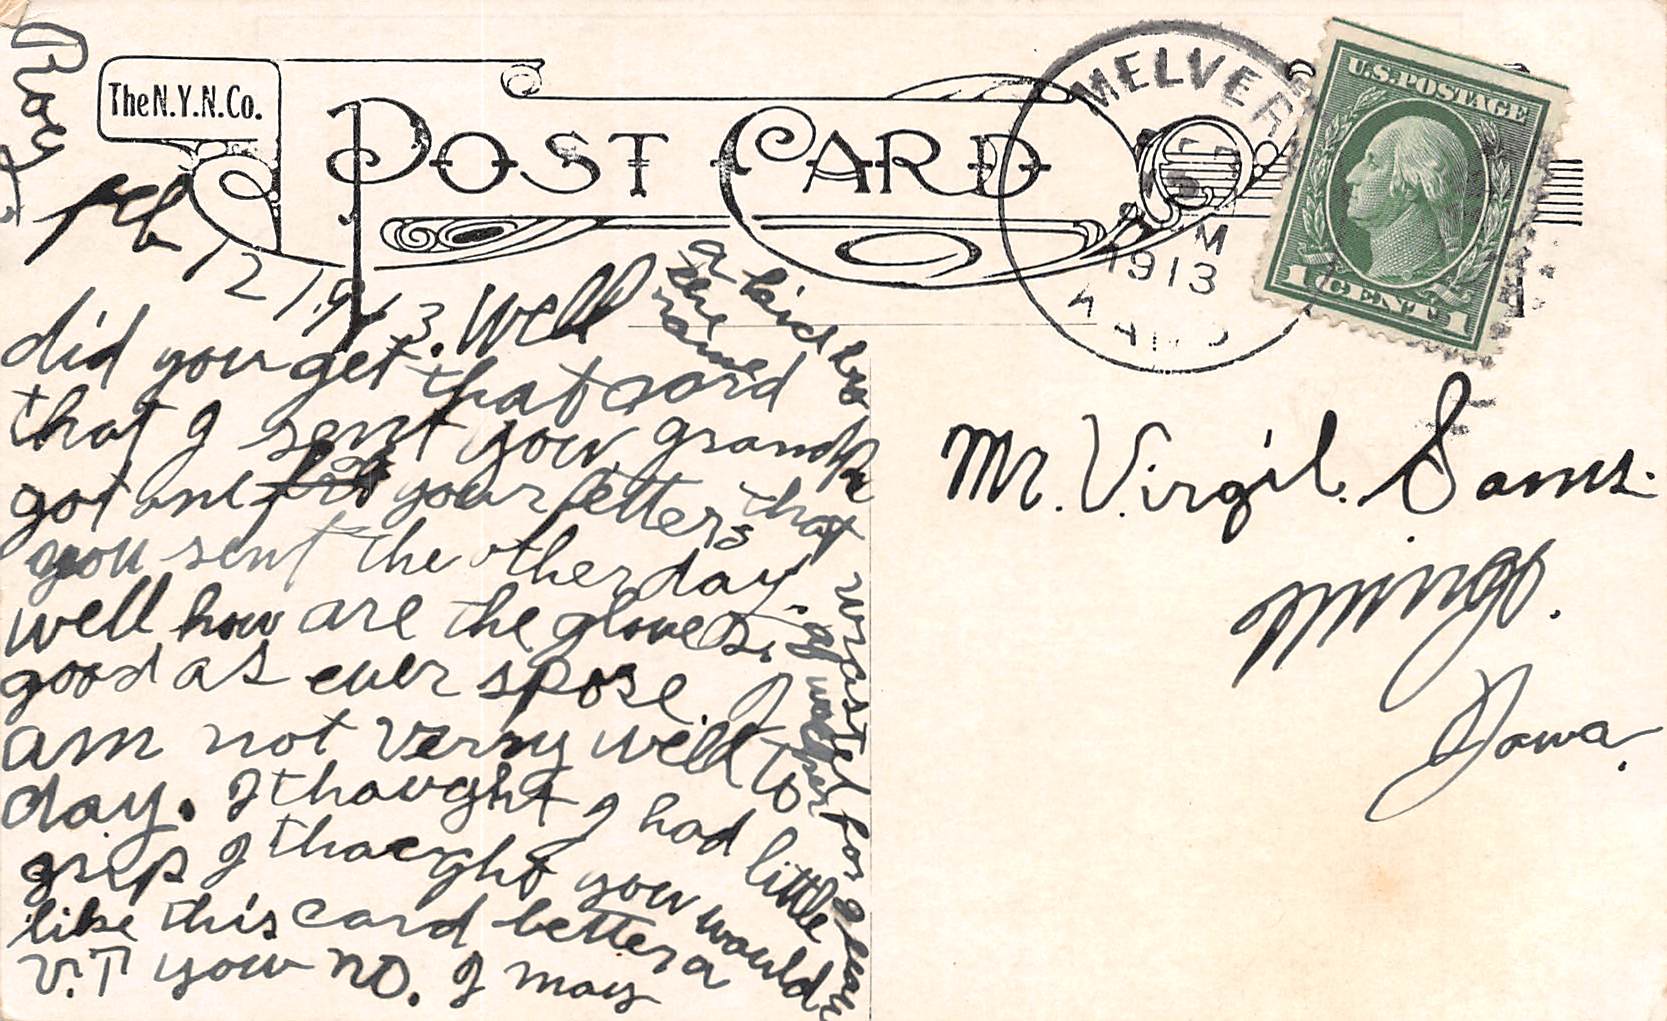 The N.Y.N.Co.
POST CARD
MELVER
FEB
M
1913
KANS
U.S.POSTAGE
1 CENT 1
Feb 12 1913. Well
did you get that card
that I sent you grandpa
got one your letters that
you sent the other day.
well how are the gloves.
good as ever spose. I
am not verry well to
day. I thought I had little
grip I thaught you would
like this card better a
V.T your no. I may
a bird
the
name
Mr. Virgil. Sams.
Mingo.
Iowa.